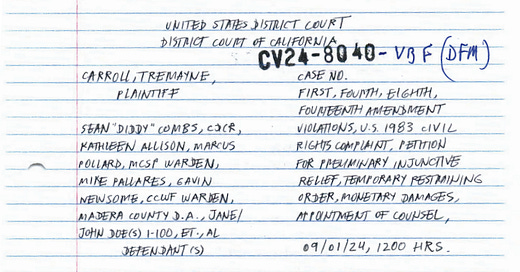 UNITED STATES DISTRICT COURT
DISTRICT COURT OF CALIFORNIA
CV24-8040-VBF (DFM)
CARROLL, TREMAYNE, CASE NO.
PLAINTIFF FIRST, FOURTH, EIGHTH,
FOURTEENTH AMENDMENT
SEAN "DIDDY" COMBS, CDCR, VIOLATIONS, U.S. 1983 CIVIL
KATHLEEN ALLISON, MARCUS RIGHTS COMPLAINT, PETITION
POLLARD, MCSP WARDEN, FOR PRELIMINARY INJUNCTIVE
MIKE PALLARES, GAVIN RELIEF, TEMPORARY RESTRAINING
NEWSOME, CCWF WARDEN, ORDER, MONETARY DAMAGES,
MADERA COUNTY D.A., JANE/ APPOINTMENT OF COUNSEL,
JOHN DOE(S) 1-100, ET., AL
DEFENDANT(S) 09/01/24, 1200 HRS.